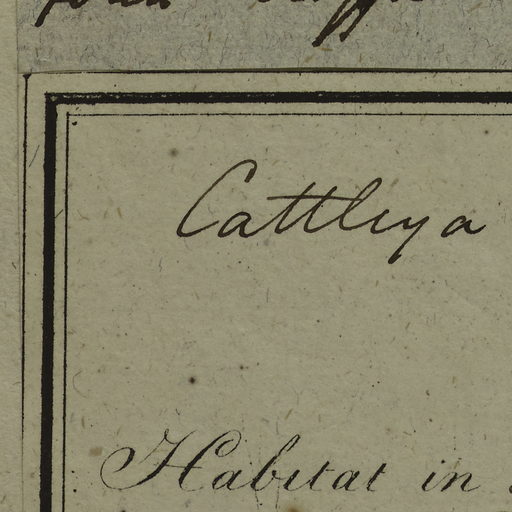 Cattleya
Habitat in